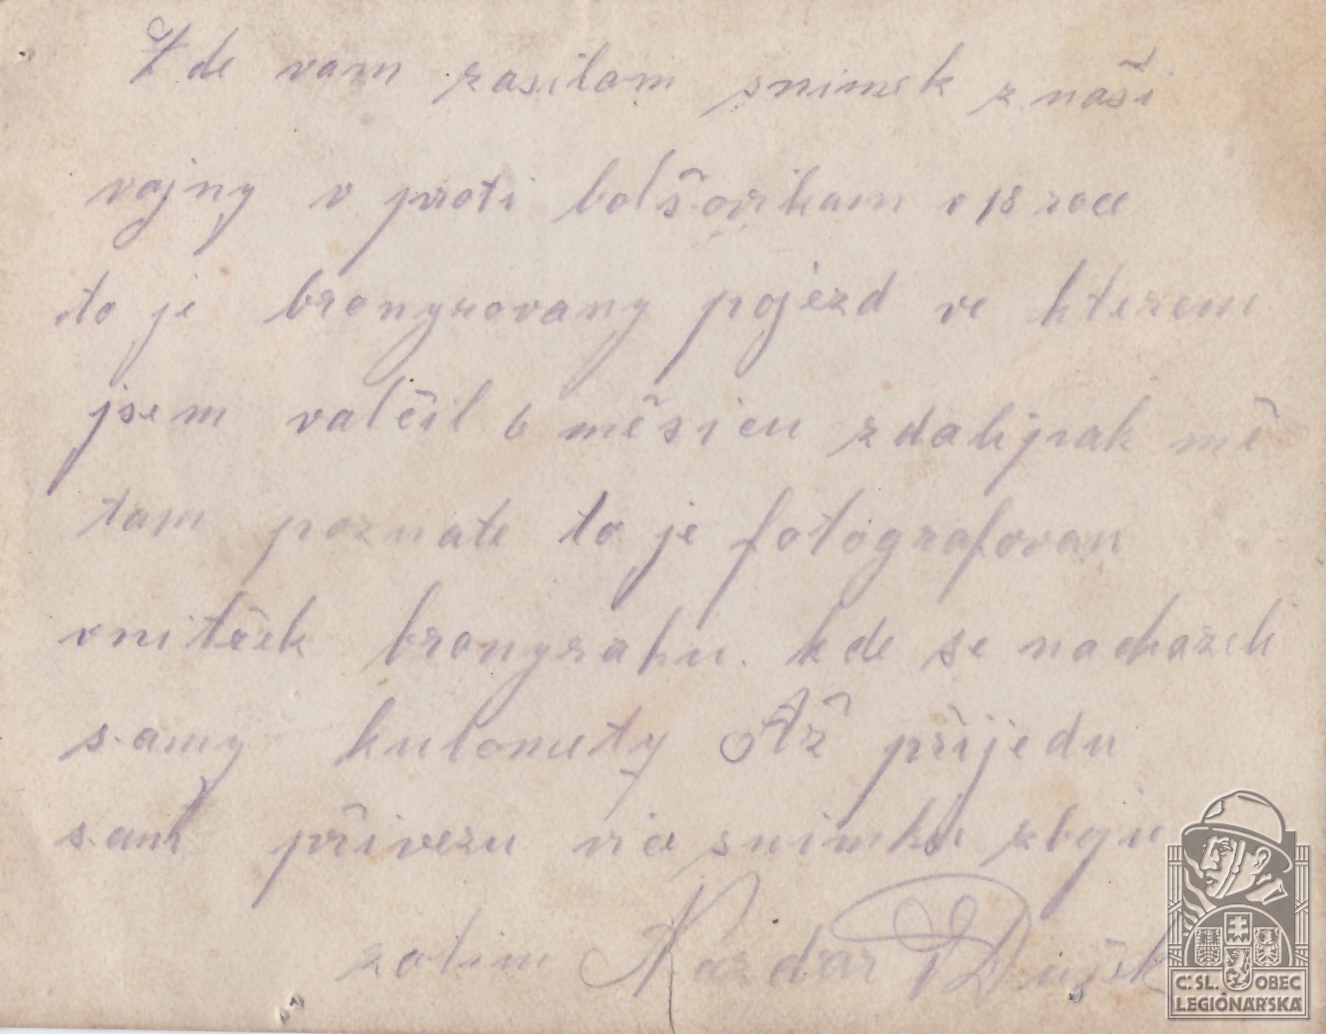 Zde vam zasilam snimek z naši
vojny v proti bolšovikam v 18 roce
to je bronyrovany pojezd ve kterem
jsem valčil 6 měsicu zdalipak mě
tam poznate to je fotografovan
vnitřek bronyraku. kde se nachazeli
samy kulomety Až přijedu
sam přivezu vic snimku zboju
zatim Nazdar Dušek
Č.SL. OBEC
LEGIONÁŘSKÁ